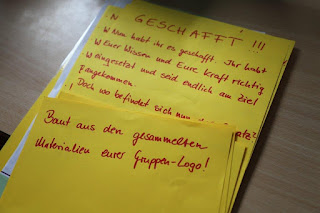 N GESCHAFFT !!!
W Nun habt ihr es geschafft. Ihr habt
W Euer Wissen und Eure Kraft richtig
W eingesetzt und seid endlich am Ziel
angekommen.
! Doch wo befindet sich nun
Baut aus den gesammelten
Materialien euer Gruppen-Logo!